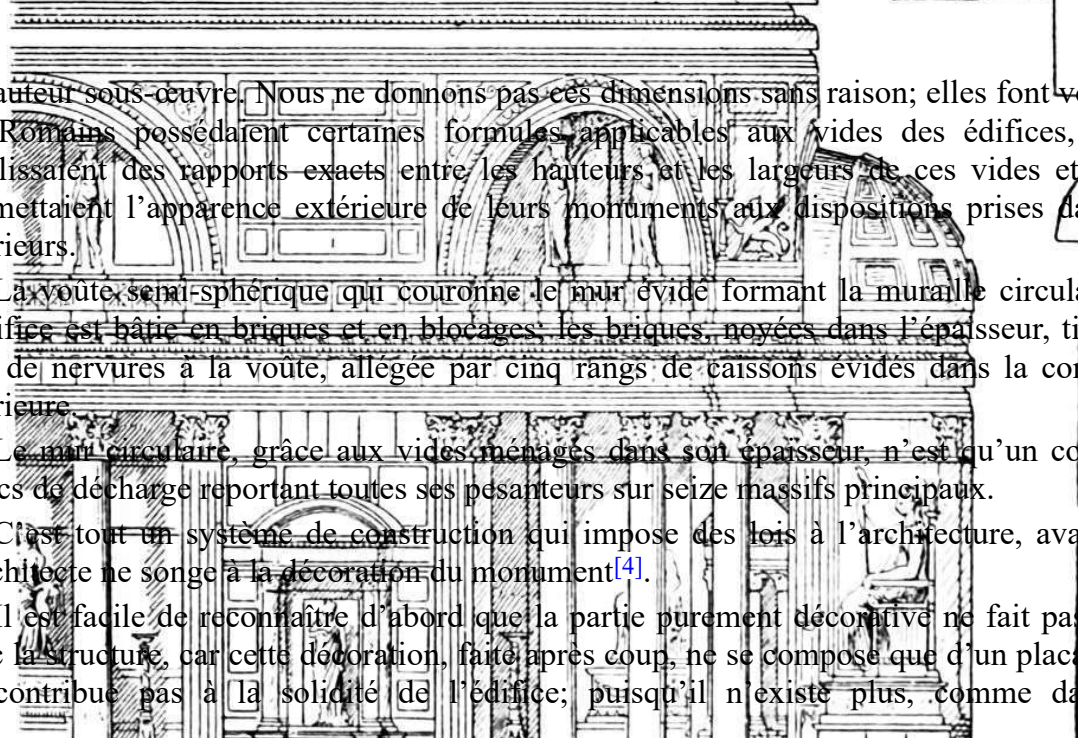 auteur sous-œuvre. Nous ne donnons pas ces dimensions sans raison; elles font v
Romains possédaient certaines formules applicables aux vides des édifices,
lissaient des rapports exacts entre les hauteurs et les largeurs de ces vides et
mettaient l’apparence extérieure de leurs monuments aux dispositions prises da
rieurs.
La voûte semi-sphérique qui couronne le mur évidé formant la muraille circula
ifice est bâtie en briques et en blocages; les briques, noyées dans l’épaisseur, ti
de nervures à la voûte, allégée par cinq rangs de caissons évidés dans la co
rieure.
Le mur circulaire, grâce aux vides ménagés dans son épaisseur, n’est qu’un co
cs de décharge reportant toutes ses pesanteurs sur seize massifs principaux.
C’est tout un système de construction qui impose des lois à l’architecture, ava
chitecte ne songe à la décoration du monument[4].
Il est facile de reconnaître d’abord que la partie purement décorative ne fait pas
la structure, car cette décoration, faite après coup, ne se compose que d’un placa
contribue pas à la solidité de l’édifice; puisqu’il n’existe plus, comme da